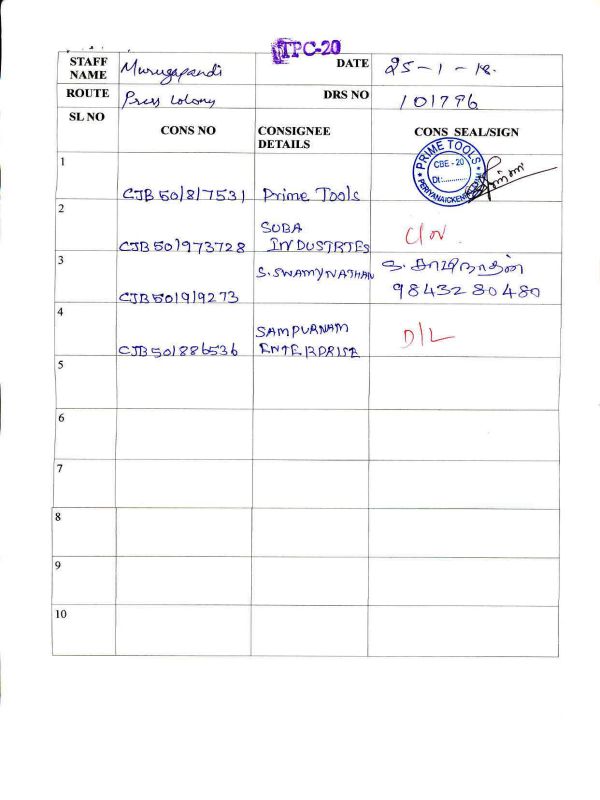 TPC-20
STAFF NAME Murugapandi DATE 25-1-18.
ROUTE Press colony DRS NO 101796
SL NO CONS NO CONSIGNEE DETAILS CONS SEAL/SIGN
PRIME TOOLS
CBE - 20
Dt:............
1 CJB501817531 Prime Tools
2 CJB501973728 SUBA INDUSTRIES
3 CJB501919273 S.SWAMYNATHAN
9843280480
4 CJB501886536 SAMPURNAM ENTERPRISE D/L
5
6
7
8
9
10